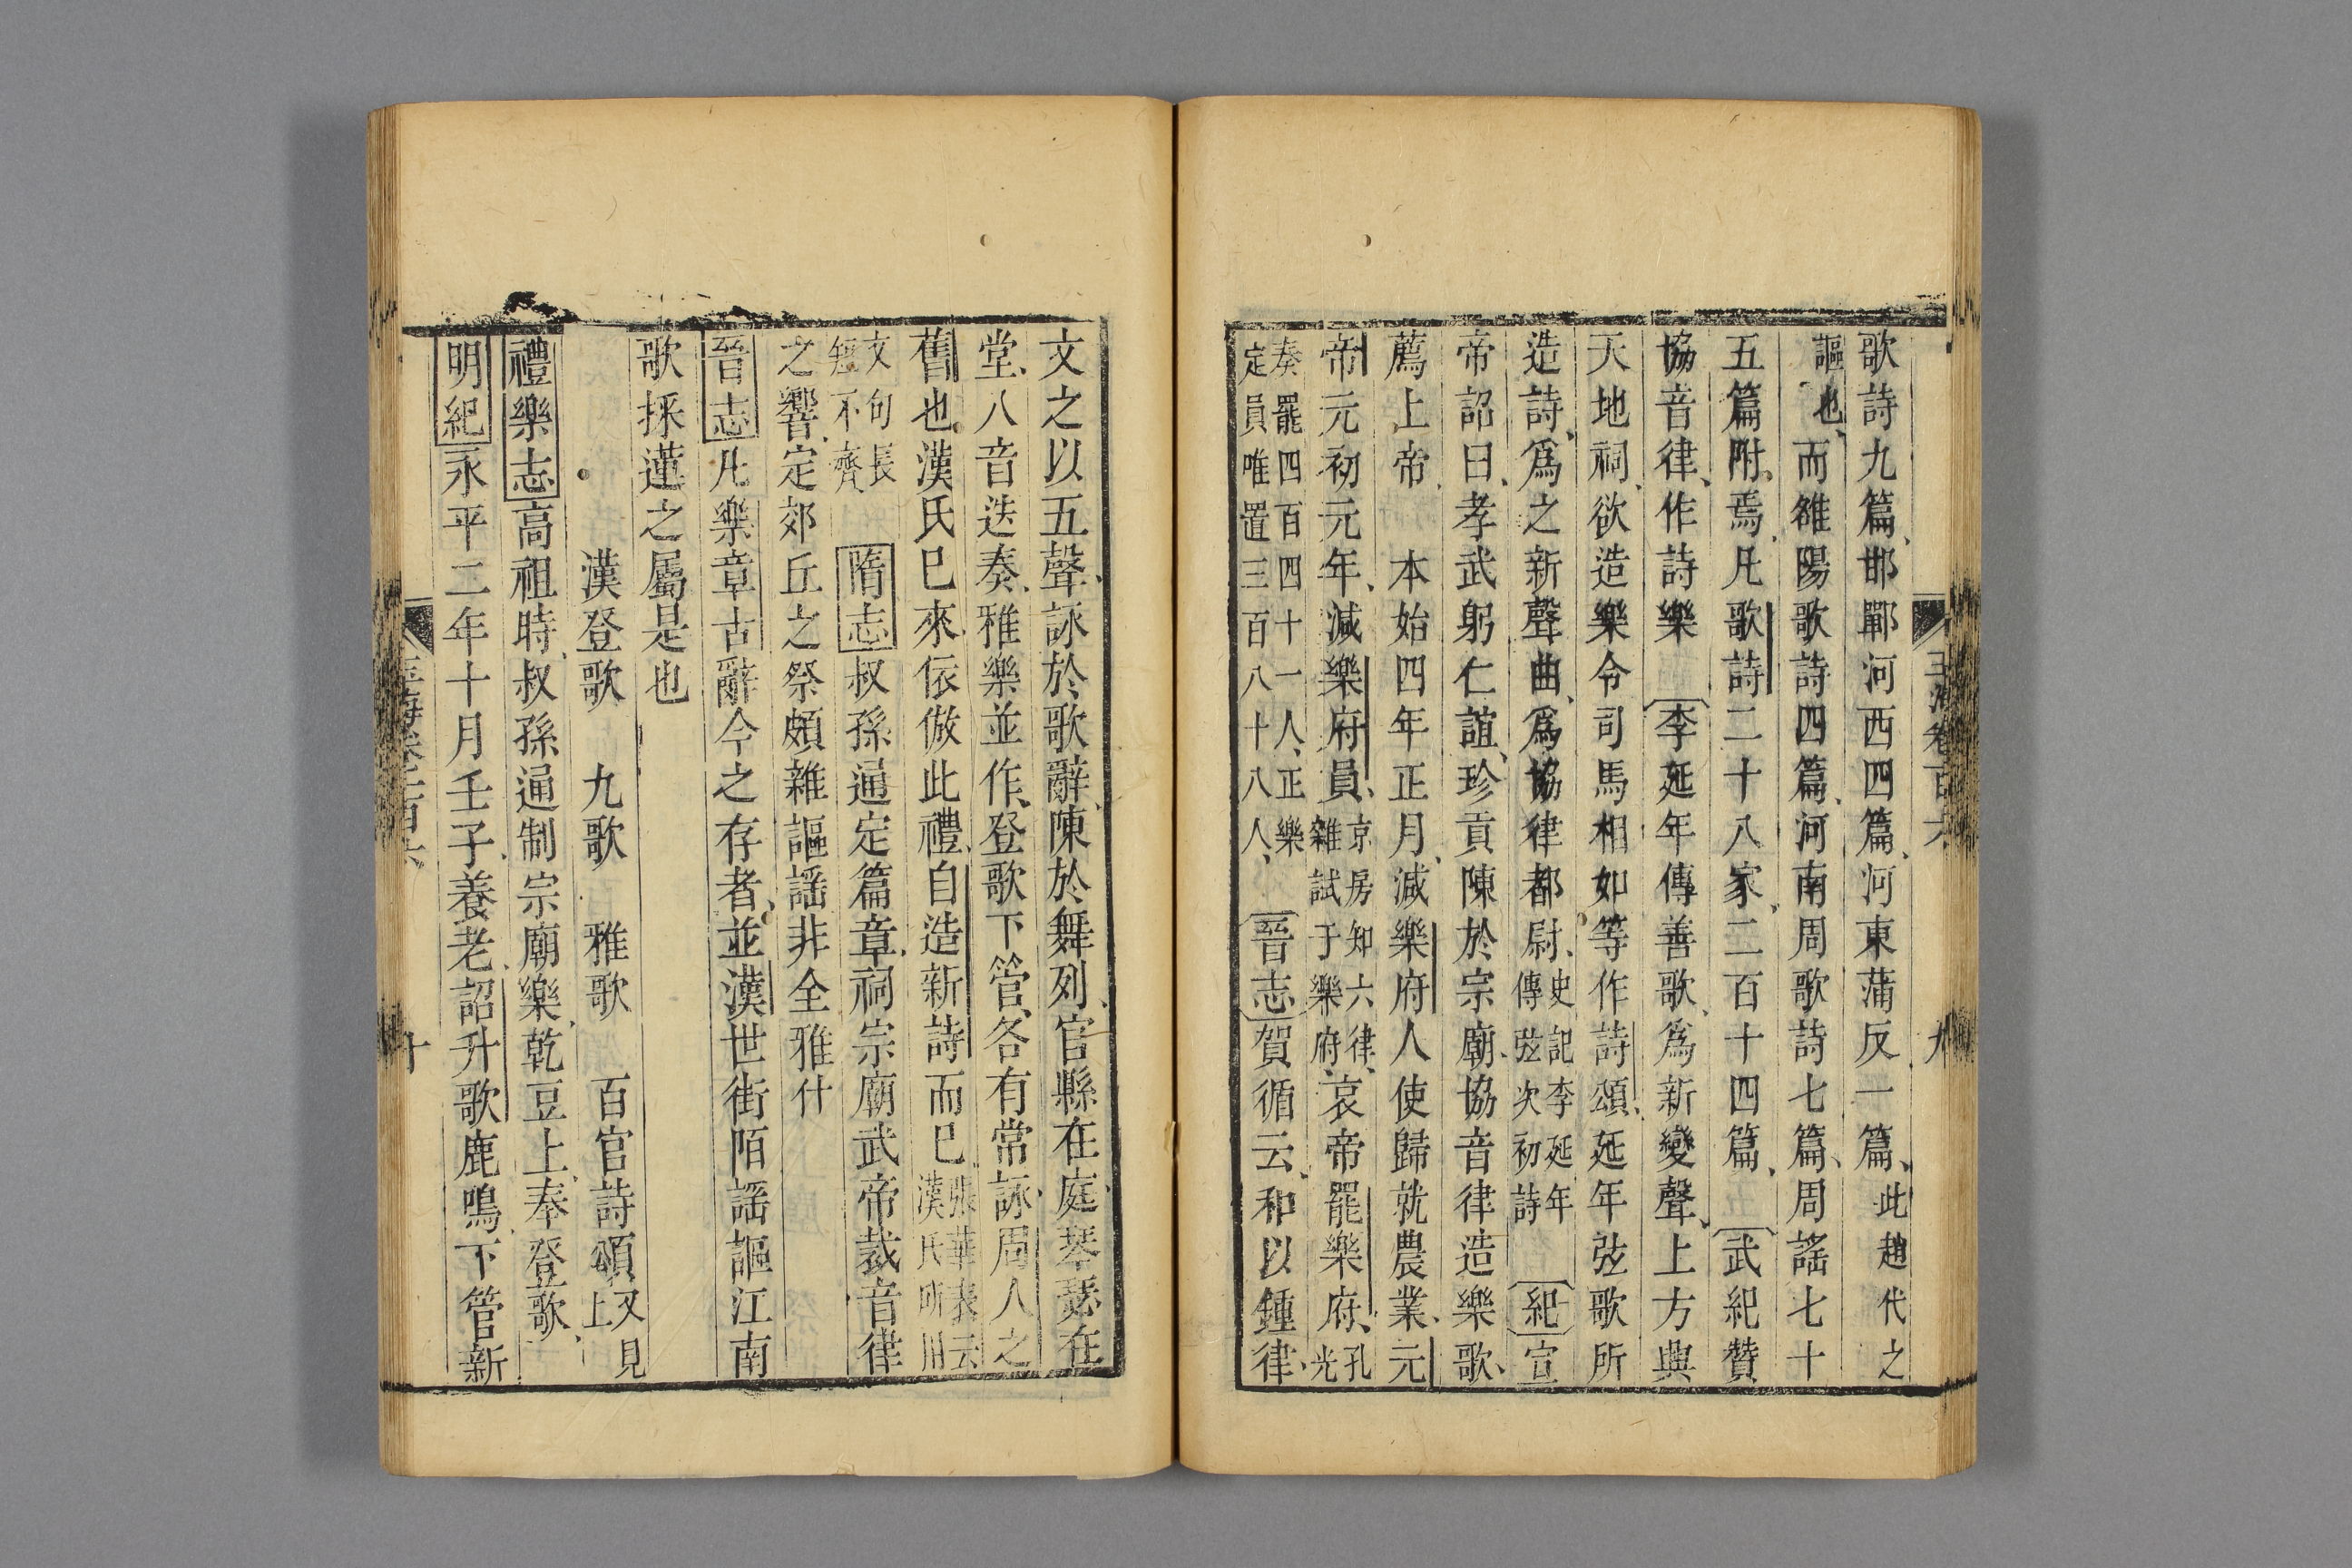 歌詩九篇邯鄲河西四篇河東蒲反一篇此趙代之
謳也而雒陽歌詩四篇河南周歌詩七篇周謠七十
五篇附焉凡歌詩二十八家二百十四篇武紀贊
協音律作詩樂李延年傳善歌爲新變聲上方興
天地祠欲造樂令司馬相如等作詩頌延年弦歌所
造詩爲之新聲曲爲協律都尉史記李延年傳弦次初詩紀宣
帝詔曰孝武躬仁誼珍貢陳於宗廟協音律造樂歌
薦上帝本始四年正月減樂府人使歸就農業元
帝元初元年減樂府員京房知六律雜試于樂府哀帝罷樂府孔光
奏罷四百四十一人正樂定員唯置三百八十八人晉志賀循云和以鍾律
玉海卷百六 九
文之以五聲詠於歌辭陳於舞列官縣在庭琴瑟在
堂八音迭奏雅樂並作登歌下管各有常詠周人之
舊也漢氏巳來依倣此禮自造新詩而巳張華表云漢氏所用
文句長短不齊隋志叔孫通定篇章祠宗廟武帝裁音律
之響定郊丘之祭頗雜謳謠非全雅什
晉志凡樂章古辭今之存者並漢世街陌謠謳江南
歌採蓮之屬是也
漢登歌 九歌 雅歌 百官詩頌又見上
禮樂志高祖時叔孫通制宗廟樂乾豆上奉登歌
明紀永平二年十月壬子養老詔升歌鹿鳴下管新
十